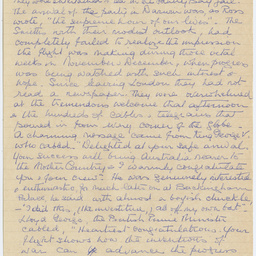 the arrival of the Smiths in Darwin was, as Ross
wrote, "the supreme hour of our lives". The
Smiths, with their modest outlook, had
completely failed to realise the impression
the flight was making during those
weeks in November & December, when progress
was being watched with such interest &
hope. Since leaving London they had not
read a newspaper. They were overwhelmed
at the tremendous welcome that afternoon
& the hundreds of cables & telegrams that
poured in from every corner of the Globe.
A charming message came from King George V.
who cabled "Delighted at your safe arrival.
Your success will bring Australia nearer to
the Mother Country & I warmly congratulate
you & your crew". He was genuinely interested,
enthusiastic
Palace he said with almost a boyish chuckle
"I did this (the investiture) off my own bat".
Lloyd George the British Prime Minister
cabled, "Heartiest Congratulations. Your
flight shows how the inventions of
war can advance the progress